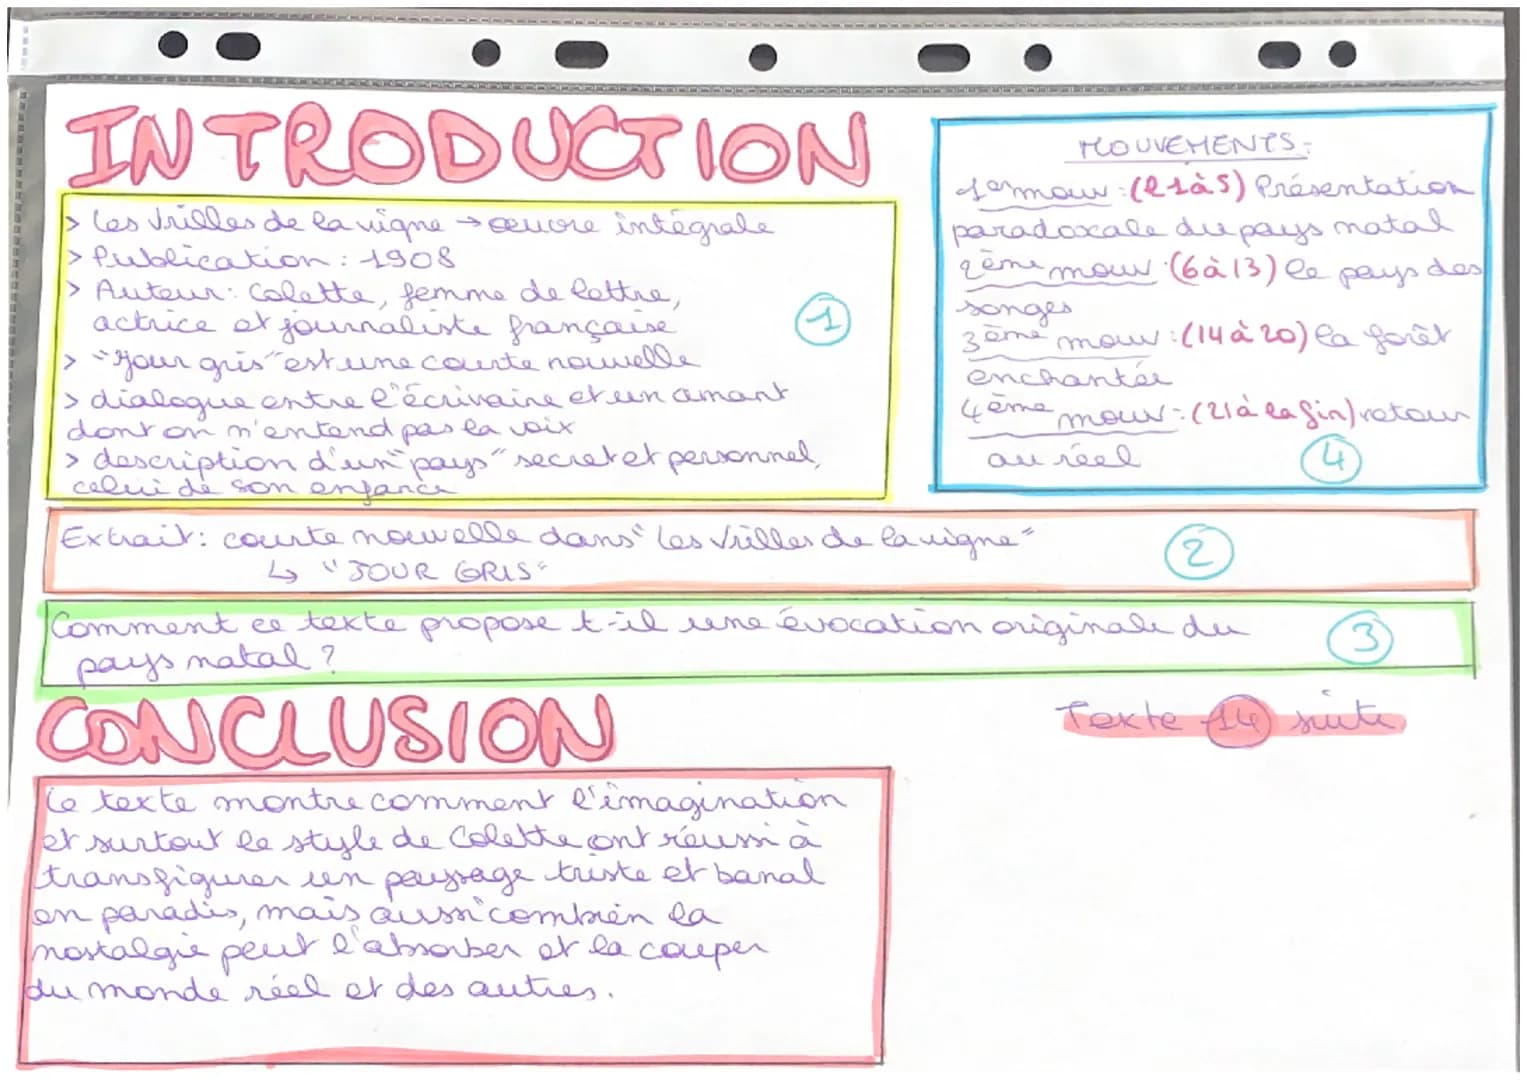 INTRODUCTION
> Les Vrilles de la vigne → œuvre intégrale
> Publication : 1908
> Auteur : Colette, femme de lettre,
actrice et journaliste française
> "Jour gris" est une courte nouvelle
> dialogue entre l'écrivaine et un amant
dont on n'entend pas la voix
> description d'un "pays" secret et personnel,
celui de son enfance
1
MOUVEMENTS :
1er mouv : (l 1 à 5) Présentation
paradoxale du pays natal
2ème mouv : (6 à 13) le pays des
songes
3ème mouv : (14 à 20) la forêt
enchantée
4ème mouv : (21 à la fin) retour
au réel
4
Extrait : courte nouvelle dans "Les Vrilles de la vigne"
↳ "JOUR GRIS"
2
Comment ce texte propose t-il une évocation originale du
pays natal ?
3
CONCLUSION
Texte 14 suite
Ce texte montre comment l'imagination
et surtout le style de Colette ont réussi à
transfigurer un paysage triste et banal
en paradis, mais aussi combien la
nostalgie peut l'absorber et la couper
du monde réel et des autres.